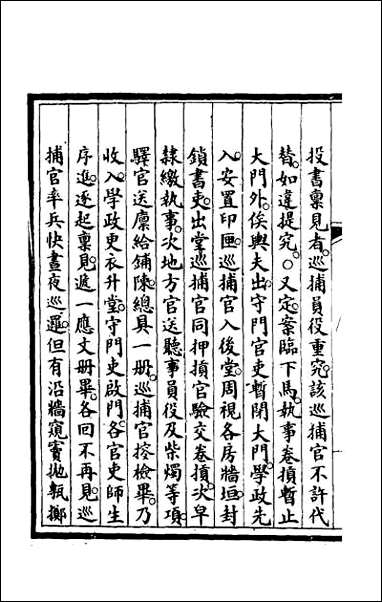 投書稟見者巡捕員役重究該巡捕官不許代
替如違提究○又定案臨下馬執事卷摃暫止
大門外俟輿夫出守門官吏暫閉大門學政先
入安置印匣巡捕官入後堂周視各房牆垣封
鎖書吏出堂巡捕官同押摃官驗交卷摃次皁
隷繳執事次地方官送聽事員役及柴燭等項
驛官送廪給鋪陳總具一冊巡捕官搾檢畢乃
收入學政更衣升堂守門吏啟門各官吏師生
序進逐起稟見遞一應文冊畢各回不再見巡
捕官率兵快晝夜巡邏但有沿牆窺竇拋瓶擲